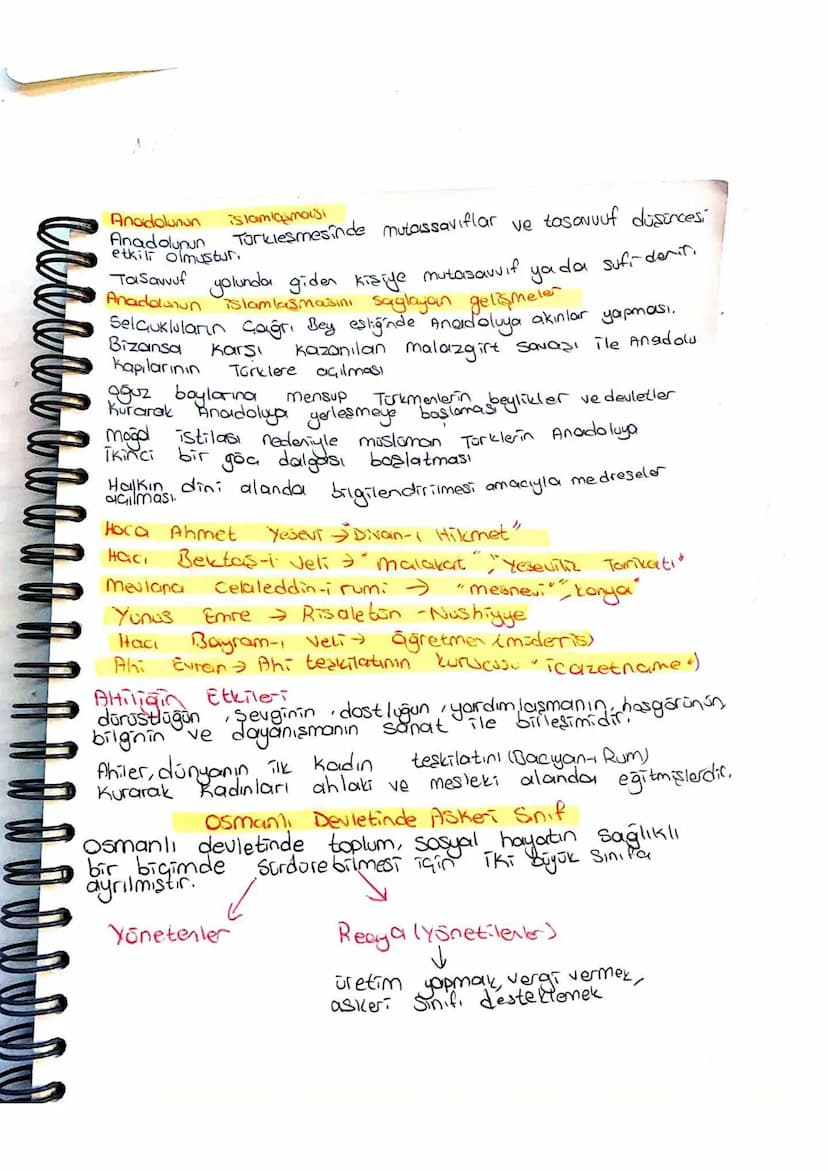 Anadolunun islamlaşması
Anadolunun Türkleşmesinde mutassavıflar ve tasavvuf düşüncesi
etkili olmuştur.
Tasavvuf yolunda giden kişiye mutasavvıf yada sufi denir.
Anadolunun islamlaşmasını sağlayan gelişmeler
Selçukluların Çağrı Bey eşliğinde Anadoluya akınlar yapması.
Bizansa karşı kazanılan malazgirt savaşı ile Anadolu
kapılarının Türklere açılması
Oğuz boylarına mensup Türkmenlerin beylikler ve devletler
kurarak Anadoluya yerleşmeye başlaması
Moğol istilası nedeniyle müslüman Türklerin Anadoluya
ikinci bir göç dalgası başlatması
Halkın dini alanda bilgilendirilmesi amacıyla medreseler
açılması.
Hoca Ahmet Yesevi → "Divan-ı Hikmet"
Hacı Bektaş-i Veli → "malakat", "Yesevilik Tarikatı"
Mevlana Celaleddin-i rumi → "mesnevi", "konya"
Yunus Emre → Risaletün - Nushiyye
Hacı Bayram-ı Veli → Öğretmen (müderis)
Ahi Evran → Ahi teşkilatının kurucusu "icazetname")
Ahiliğin Etkileri
dürüstlüğün, sevginin, dostluğun, yardımlaşmanın, hoşgörünün,
bilginin ve dayanışmanın sanat ile birleşimidir.
Ahiler, dünyanın ilk kadın teşkilatını (Bacıyan-ı Rum)
kurarak kadınları ahlaki ve mesleki alanda eğitmişlerdir.
Osmanlı Devletinde Askeri Sınıf
Osmanlı devletinde toplum, sosyal hayatın sağlıklı
bir biçimde sürdürebilmesi için iki büyük sınıfa
ayrılmıştır.
Yönetenler Reaya (Yönetilenler)
üretim yapmak, vergi vermek,
askeri sınıfı desteklemek